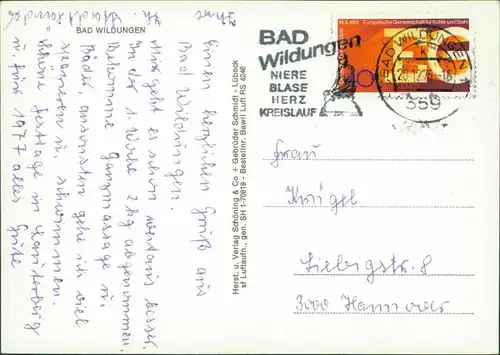 BAD WILDUNGEN
Einen herzlichen Gruß aus
Bad Wildungen.
Mir geht es schon weitaus besser.
In der 1. Woche 2 kg abgenommen.
Bekomme Ganzmassage u.
Bäder, ansonsten gehe ich viel
spazieren u. schwimmen.
Schöne Festtage in Lauterberg
u. fürs 1977 alles Gute
Ihre
Herst. u. Verlag Schöning & Co + Gebrüder Schmidt - Lübeck
sf Luftaufn., gen. SH 1-70819 - Bestellnr. Bawil Luft RS 4246
BAD
Wildungen
NIERE
BLASE
HERZ
KREISLAUF
Europäische Gemeinschaft für Kohle und Stahl
40
BAD WILDUNGEN
28.12.76
359
Frau
Krügel
Liebigstr. 8
3000 Hannover